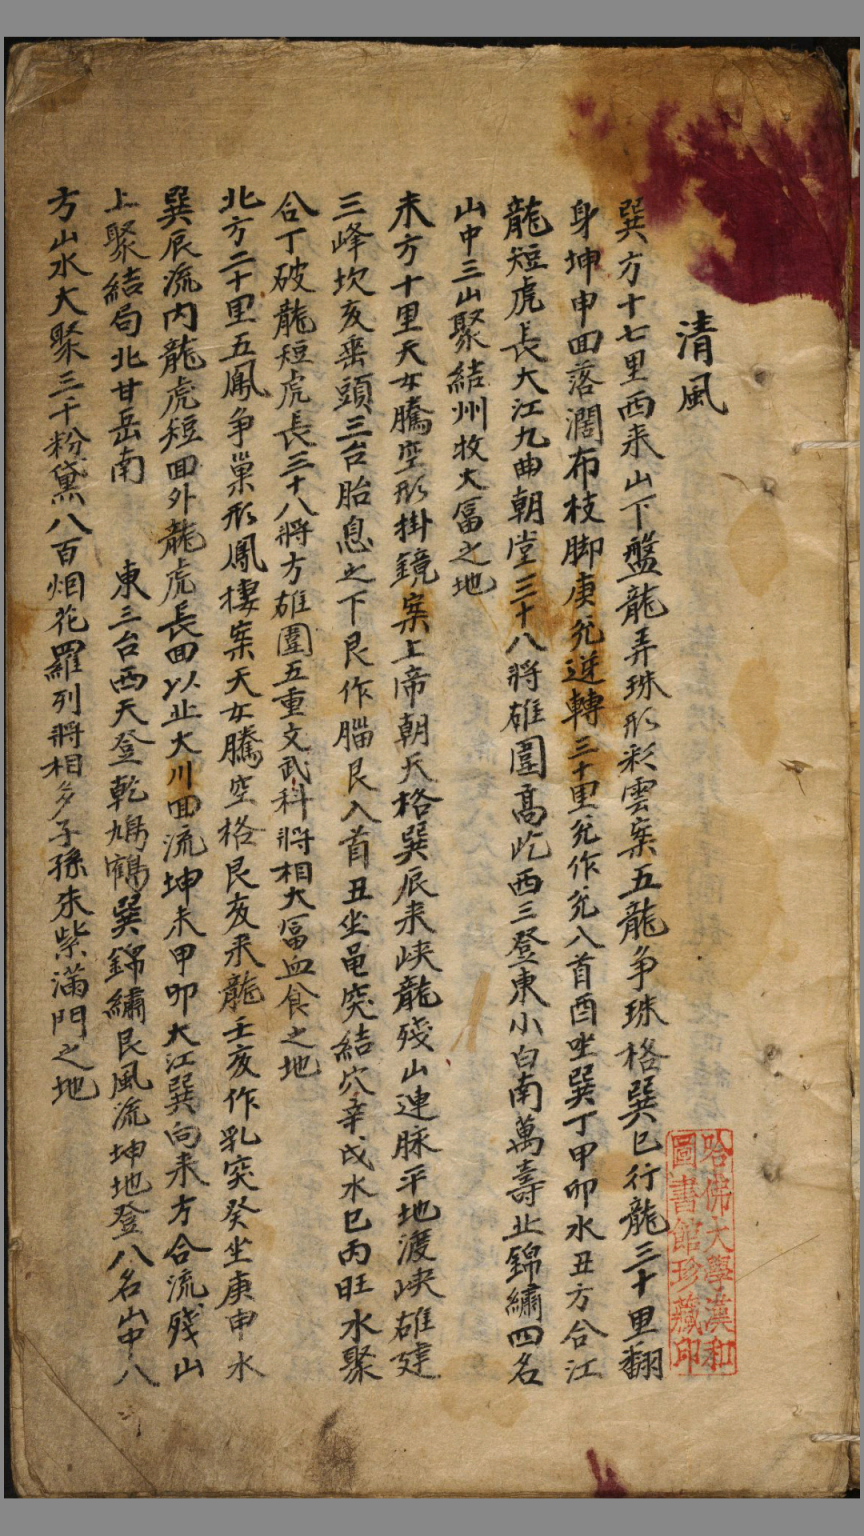 清風
巽方十七里酉来山下盤龍弄珠形彩雲案五龍争珠格巽巳行龍三十里翻
身坤申回落濶布枝脚庚兊逆轉三十里兊作兊入首酉坐巽丁甲卯水丑方合江
龍短虎長大江九曲朝堂三十八將雄圍高屹西三登東小白南萬壽北錦繡四名
山中三山聚結州牧大富之地
未方十里天女騰空形掛鏡案上帝朝天格巽辰来峽龍殘山連脉平地渡峽雄建
三峰坎亥垂頭三台胎息之下艮作腦艮入首丑坐黽突結穴辛戌水巳丙旺水聚
合丁破龍短虎長三十八將方雄圍五重文武科將相大富血食之地
北方二十里五鳳争巢形鳳樓案天女騰空格艮亥来龍壬亥作乳突癸坐庚申水
巽辰流内龍虎短回外龍虎長回以止大川回流坤未甲卯大江巽向未方合流殘山
上聚結局北甘岳南 東三台西天登乾鳩鶴巽錦繡艮風流坤地登八名山中八
方山水大聚三千粉黛八百烟花羅列將相多子孫朱紫滿門之地
哈佛大學漢和
圖書館珍藏印